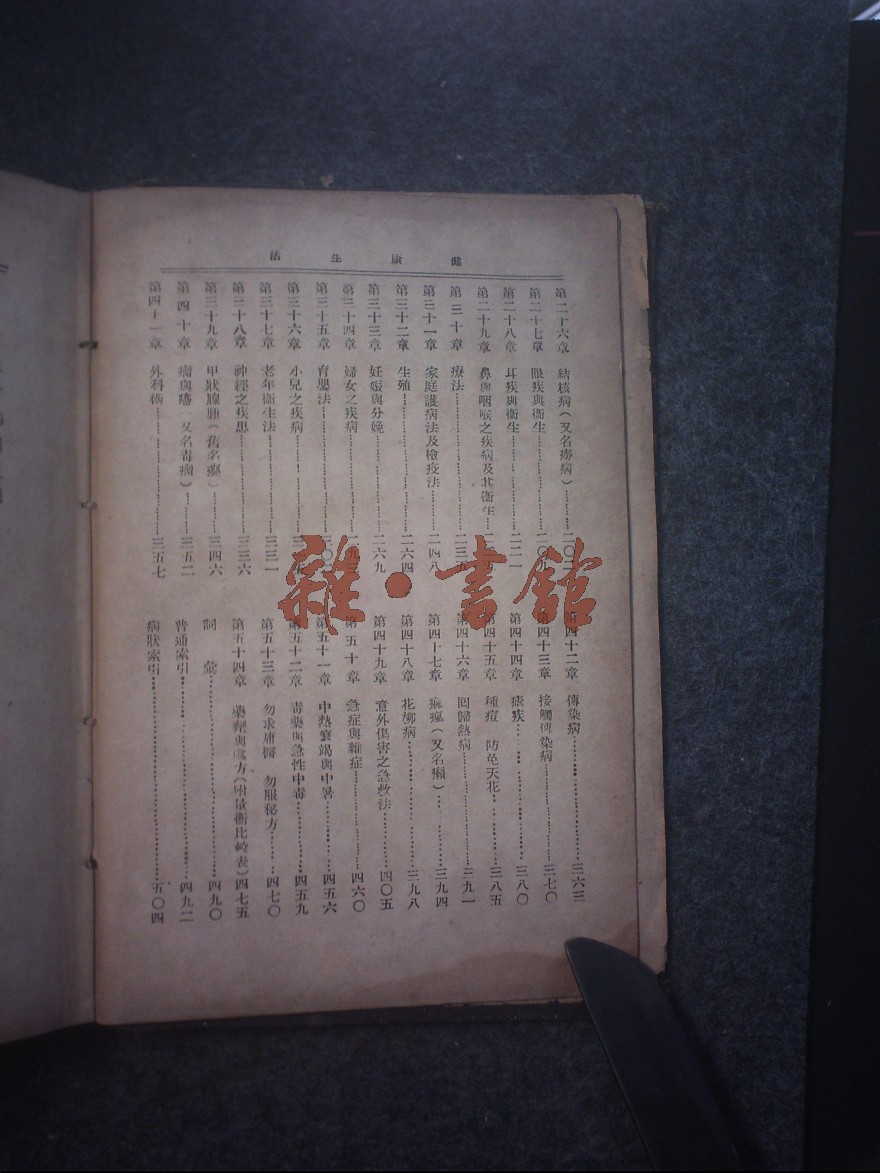 健康生活
第二十六章 結核病（又名癆病）………二〇
第二十七章 眼疾與衞生………二〇九
第二十八章 耳疾與衞生………二二一
第二十九章 鼻與咽喉之疾病及其衞生…二
第三十章 療法………二三
第三十一章 家庭護病法及檢疫法………二四八
第三十二章 生殖………二六四
第三十三章 妊娠與分娩………二六九
第三十四章 婦女之疾病………二九三
第三十五章 育嬰法………三〇
第三十六章 小兒之疾病………三
第三十七章 老年衞生法………三三一
第三十八章 神經之疾患………三三六
第三十九章 甲狀腺腫（舊名癭）………三四六
第四十章 瘤與癌 又名毒瘤）………三五二
第四十一章 外科術………三五七
第四十二章 傳染病………三六三
第四十三章 接觸傳染病………三七〇
第四十四章 痰疾………三八〇
第四十五章 種痘 防免天花………三八五
第四十六章 回歸熱病………三九一
第四十七章 痲瘋（又名癩）………三九四
第四十八章 花柳病………三九八
第四十九章 意外傷害之急救法………四〇五
第五十章 急症與雜症………四六〇
第五十一章 中熱衰竭與中暑………四五六
第五十二章 毒藥與急性中毒………四五九
第五十三章 勿求庸醫 勿服秘方………四七〇
第五十四章 藥劑與處方（附量衡比較表）四七五
詞彙………四九〇
普通索引………四九二
病狀索引………五〇四
雜·書館